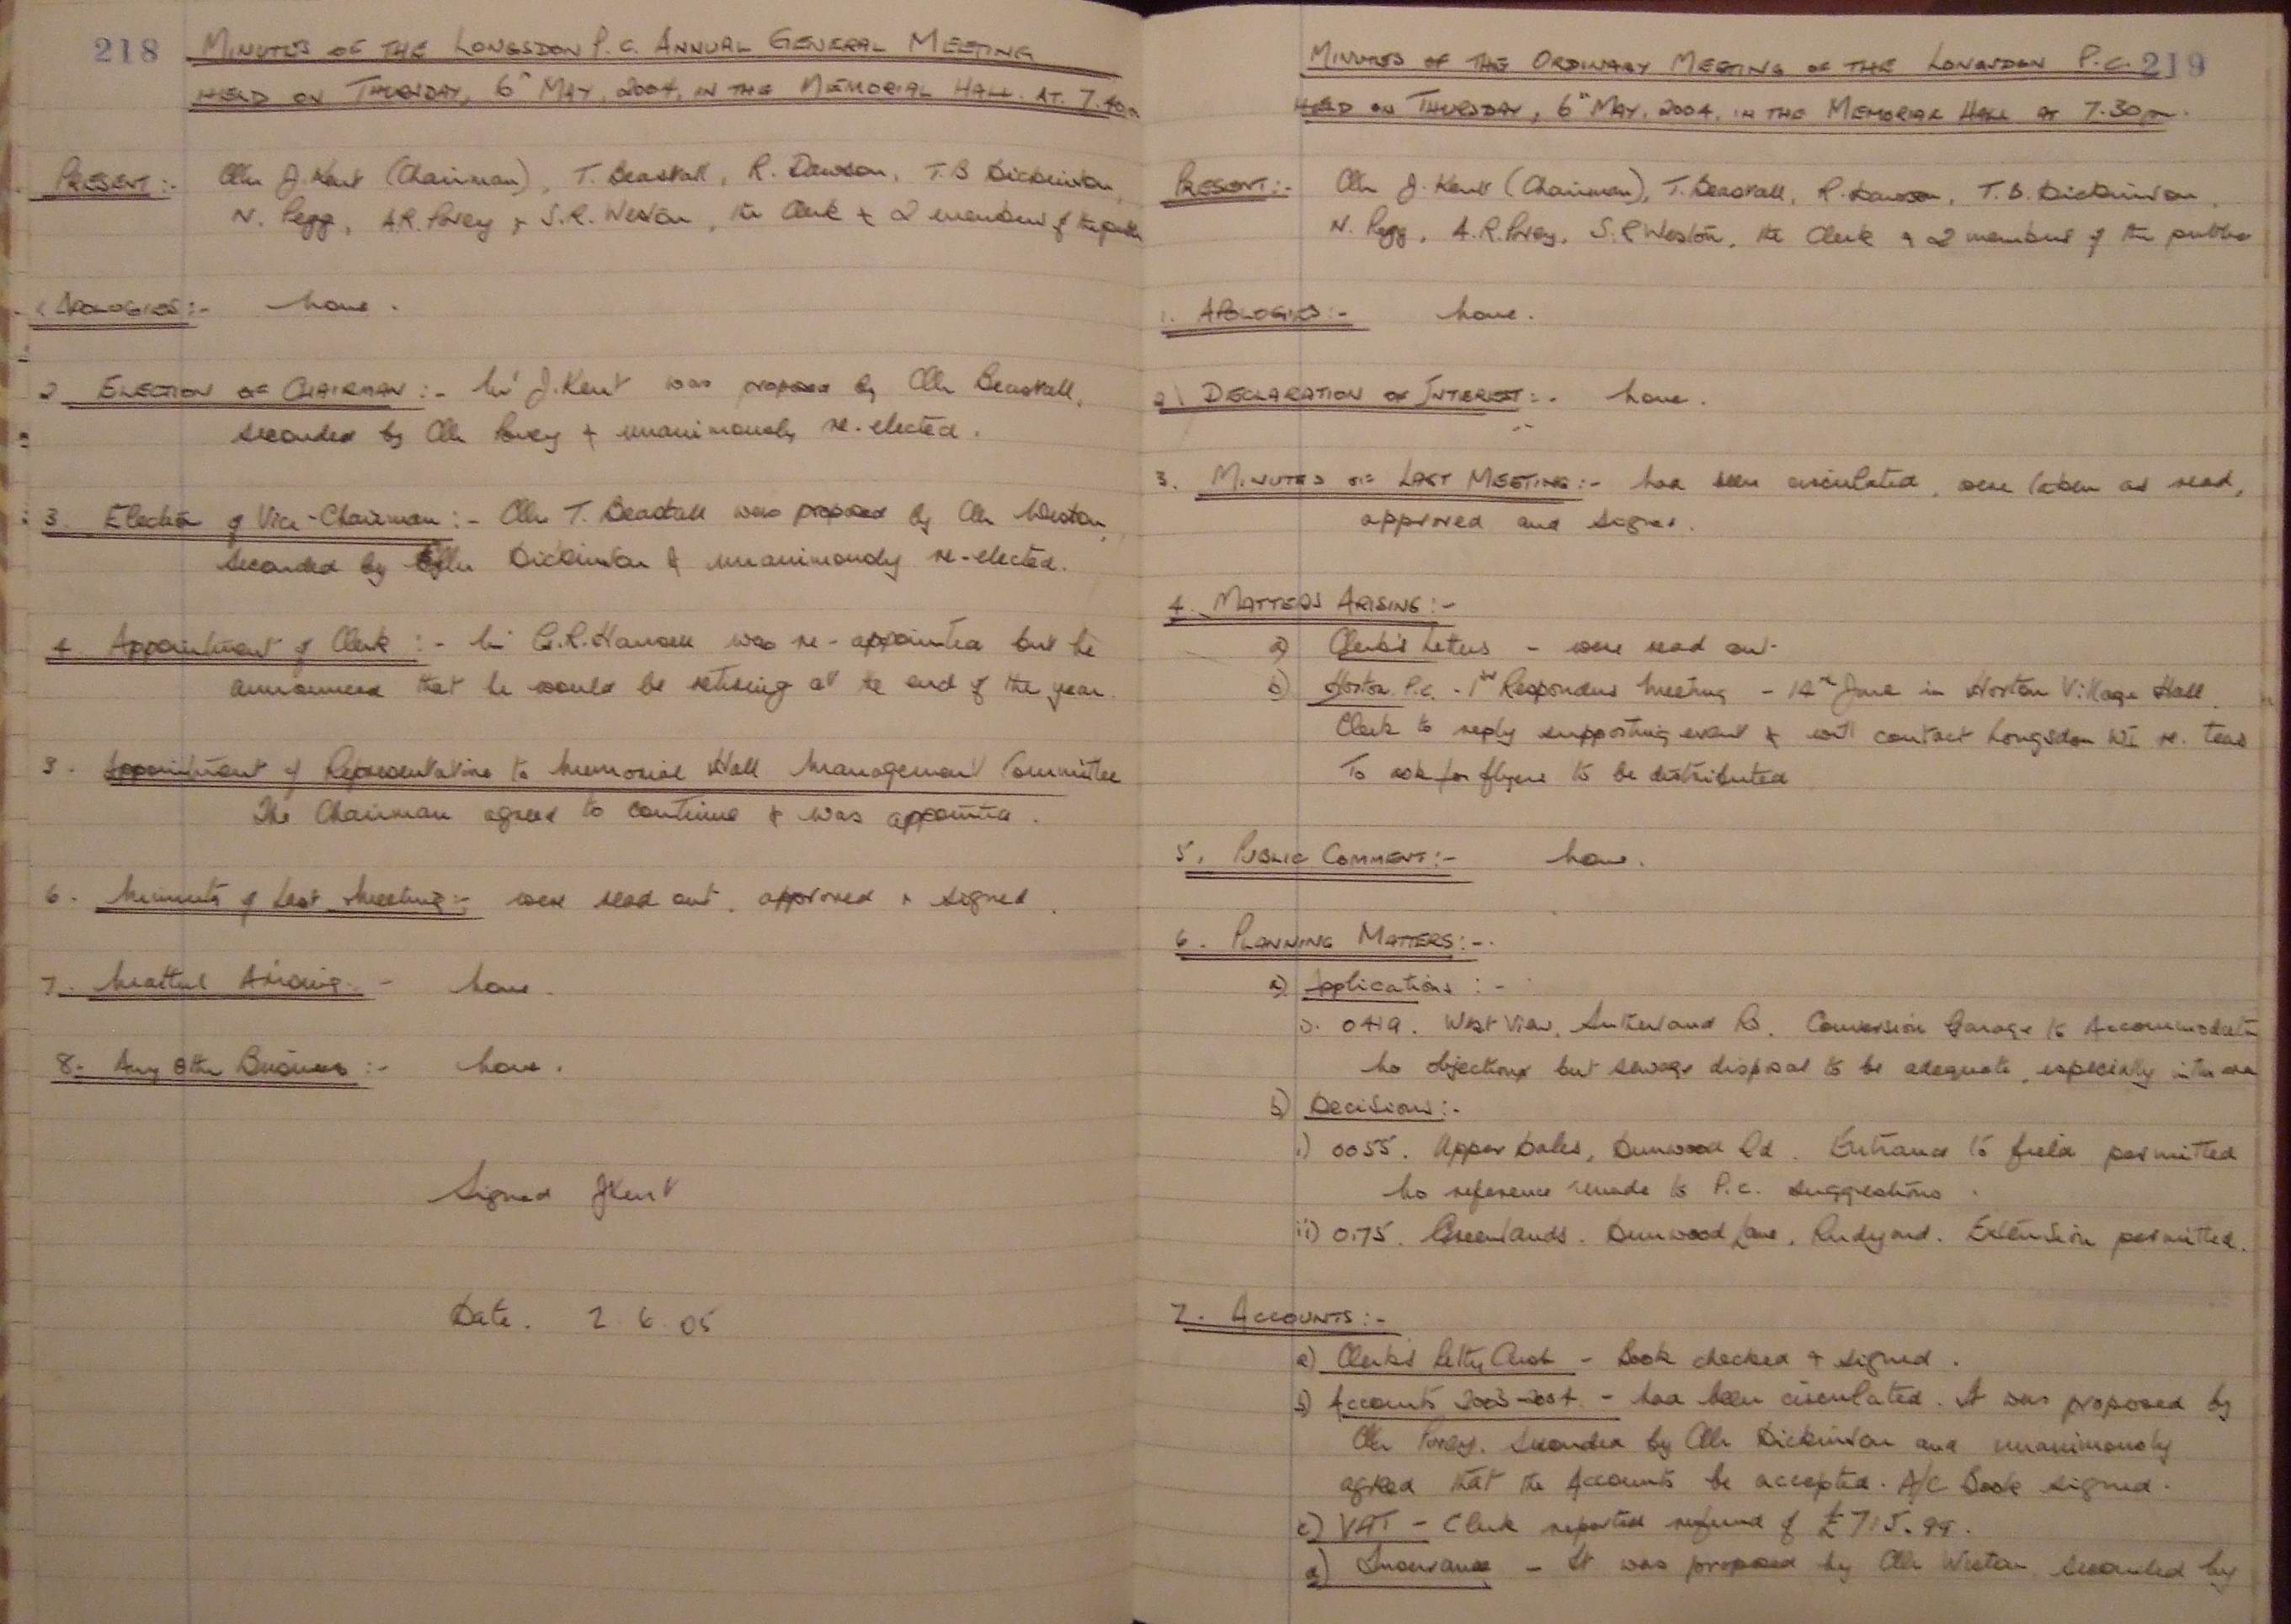 218
MINUTES OF THE LONGSDON P.C. ANNUAL GENERAL MEETING
HELD ON THURSDAY, 6th MAY, 2004, IN THE MEMORIAL HALL AT 7.
PRESENT:- Cllr J. Kent (Chairman), T. Beastall, R. Dawson, T.B Dickinson,
N. Pegg, A.R. Povey & S.R. Weston, the Clerk & 2 members of the public
1 APOLOGIES:- None.
2 ELECTION OF CHAIRMAN:- Mr J. Kent was proposed by Cllr Beastall,
seconded by Cllr Povey & unanimously re-elected.
3. Election of Vice-Chairman:- Cllr T. Beastall was proposed by Cllr Weston,
seconded by Cllr Dickinson & unanimously re-elected.
4. Appointment of Clerk:- Mr G.R. was re-appointed but he
announced that he would be retiring at the end of the year.
5. Appointment of Representative to Memorial Hall Management Committee
The Chairman agreed to continue & was appointed.
6. Minutes of Last Meeting:- were read out, approved & signed.
7. Matters Arising - None.
8. Any Other Business:- None.
Signed JKent
Date. 2.6.05
MINUTES OF THE ORDINARY MEETING OF THE LONGSDON P.C. 219
HELD ON THURSDAY, 6th MAY, 2004, IN THE MEMORIAL HALL AT 7.30pm.
PRESENT:- Cllr J. Kent (Chairman), T. Beastall, R. Dawson, T.B. Dickinson,
N. Pegg, A.R. Povey, S.R Weston, the Clerk & 2 members of the public
1. APOLOGIES:- None.
2) DECLARATION OF INTEREST:- None.
3. MINUTES OF LAST MEETING:- had been circulated, were taken as read,
approved and signed.
4. MATTERS ARISING:-
a) Clerk's Letters - were read out.
b) Horton P.C. - 1st Responders Meeting - 14th June in Horton Village Hall.
Clerk to reply supporting event & will contact Longsdon WI re. teas
To ask for flyers to be distributed
5. PUBLIC COMMENT:- None.
6. PLANNING MATTERS:-
a) Applications:-
i). 0419. West View, Sutherland Rd. Conversion Garage to Accommodation
No objections but sewage disposal to be adequate, especially in this area
b) Decisions:-
i) 0055. Upper Dales, Dunwood Rd. Entrance to field permitted
No reference made to P.C. suggestions.
ii) 0175. Greenlands. Dunwood Lane, Rudyard. Extension permitted.
7. ACCOUNTS:-
a) Clerk's Petty Cash - Book checked & signed.
b) Accounts 2003-2004 - had been circulated. It was proposed by
Cllr Povey, seconded by Cllr Dickinson and unanimously
agreed that the Accounts be accepted. A/C Book signed.
c) VAT - Clerk reported refund of £715.99.
d) Insurance - It was proposed by Cllr Weston seconded by